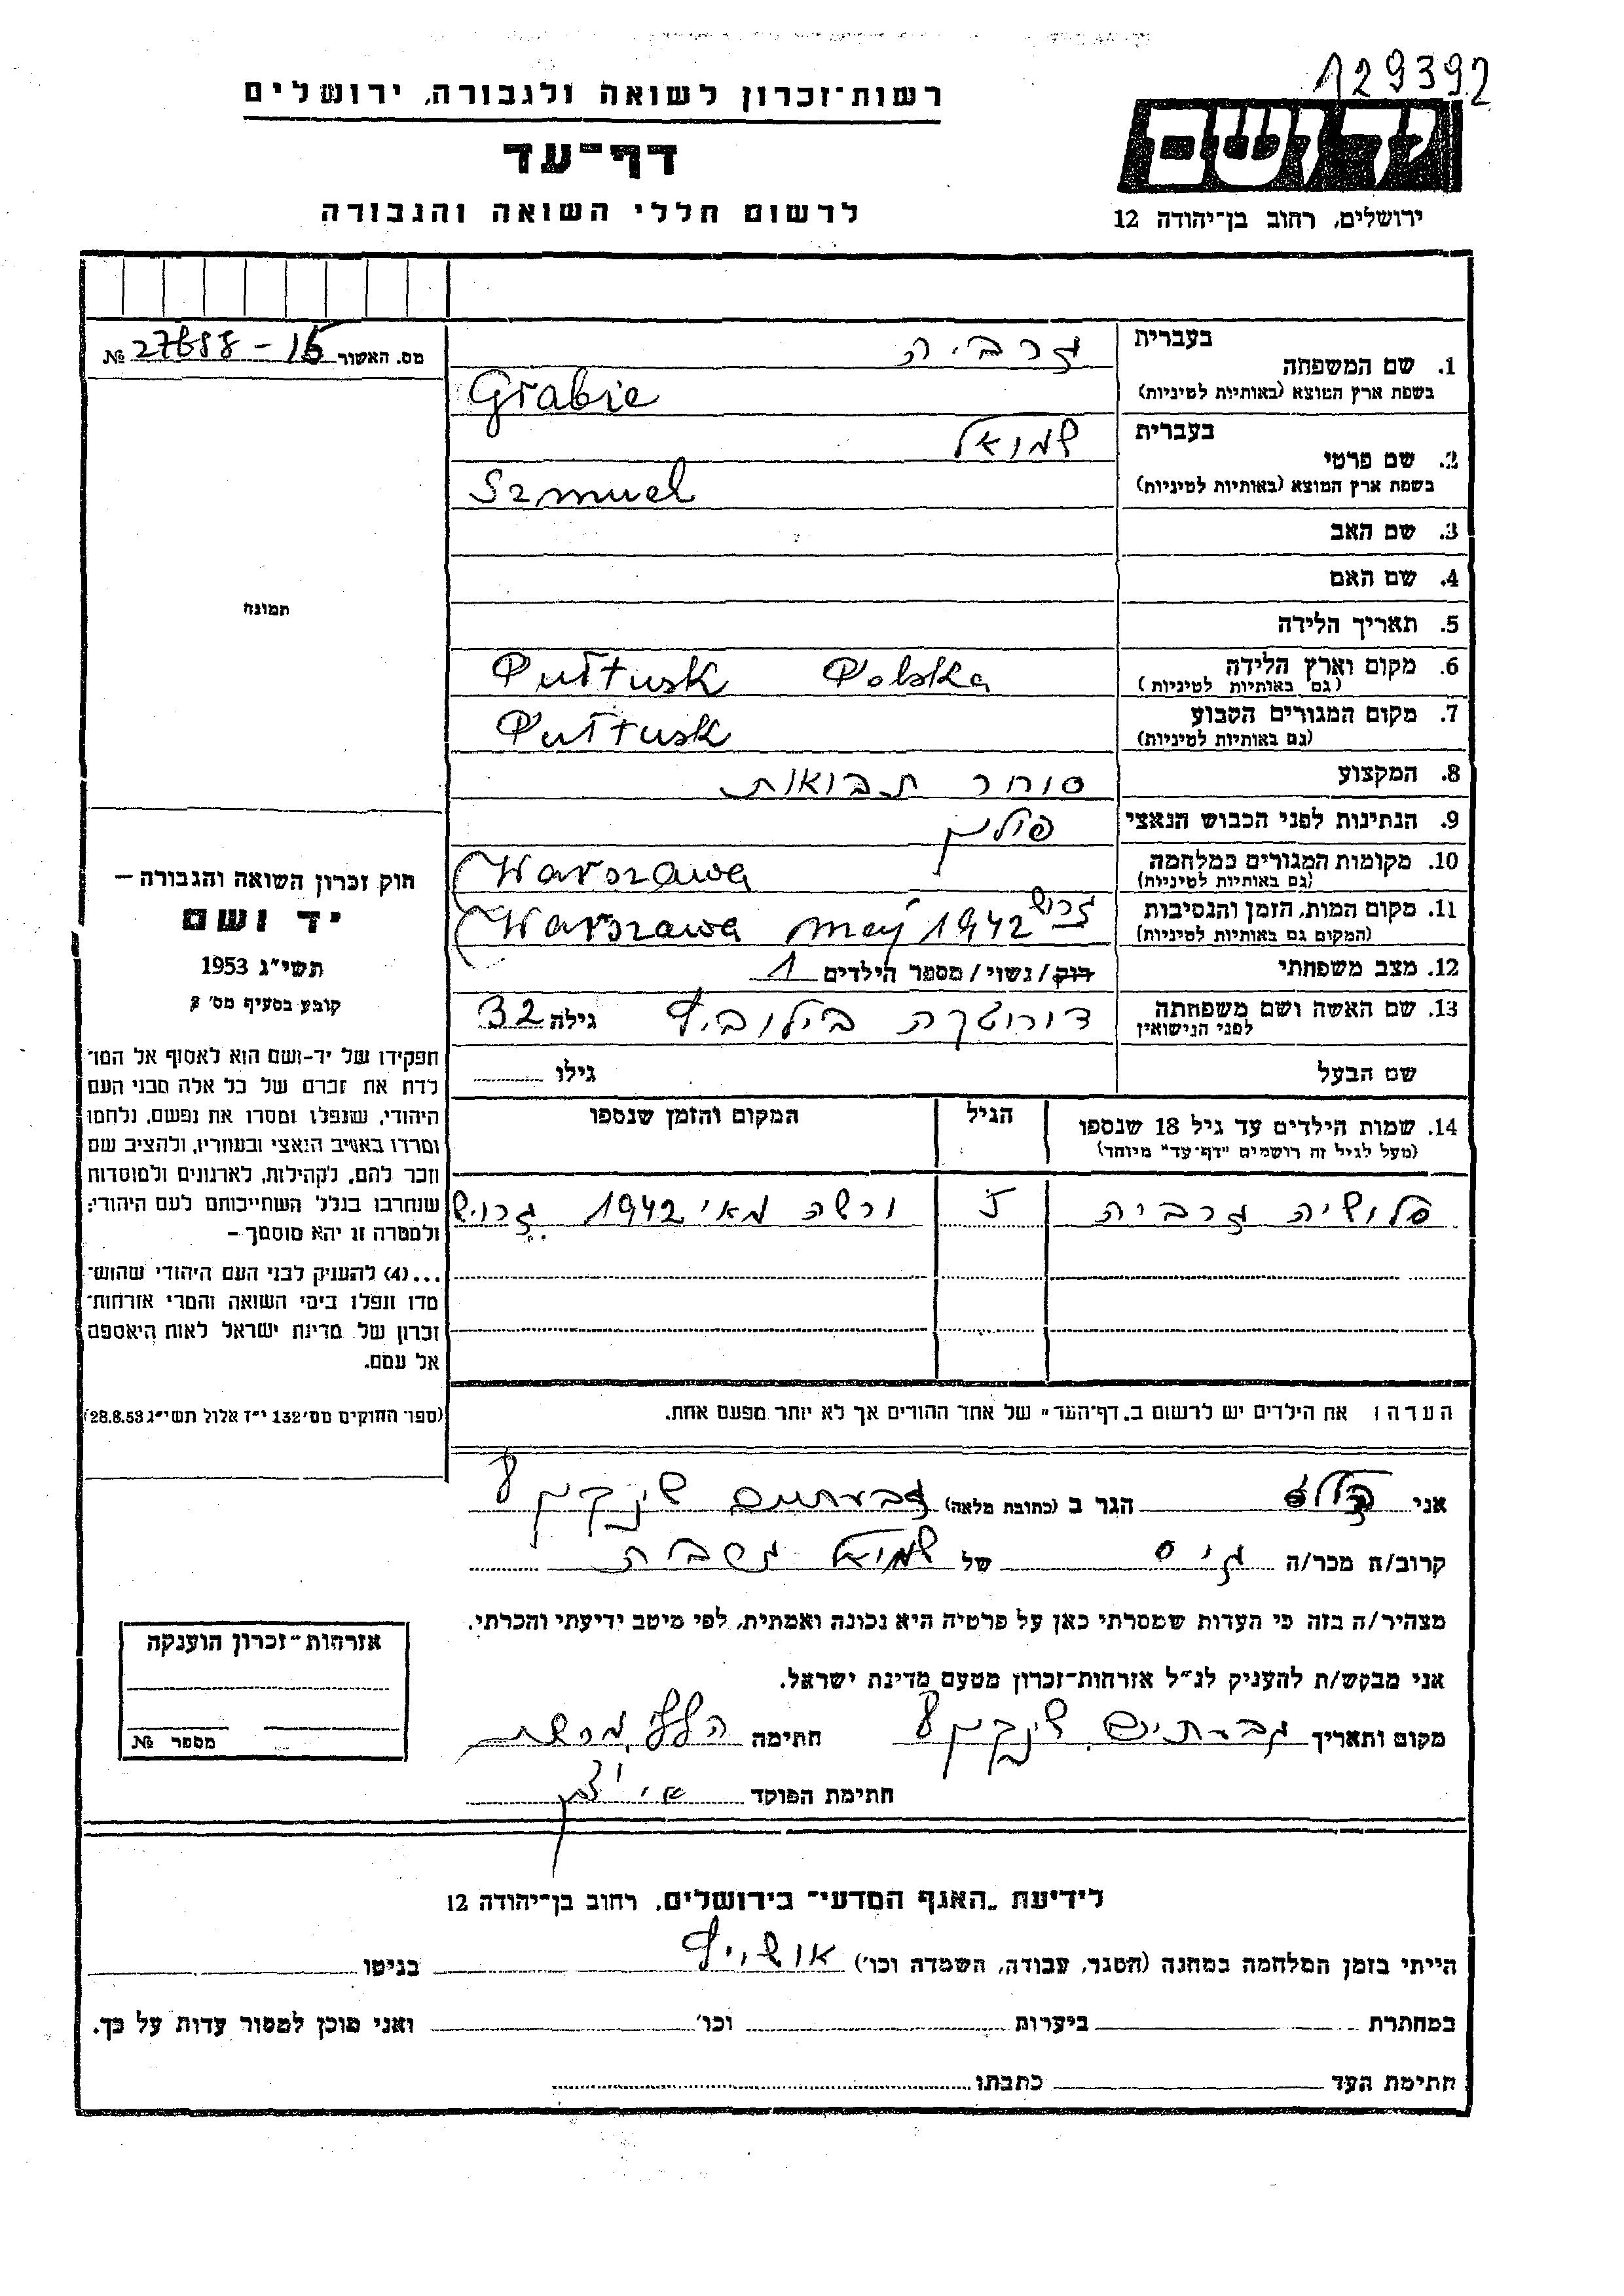 129392
רשות-זכרון לשואה ולגבורה, ירושלים
דף-עד
לרשום חללי השואה והגבורה
יד ושם
ירושלים, רחוב בן-יהודה 12
מס. האשור № 27688-16
בעברית גרביה
1. שם המשפחה
בשפת ארץ המוצא (באותיות לטיניות) Grabie
בעברית שמואל
2. שם פרטי
בשפת ארץ המוצא (באותיות לטיניות) Szmuel
3. שם האב
4. שם האם
5. תאריך הלידה
6. מקום וארץ הלידה Pułtusk Polska
(גם באותיות לטיניות)
7. מקום המגורים הקבוע Pułtusk
(גם באותיות לטיניות)
8. המקצוע סוחר תבואות
9. הנתינות לפני הכבוש הנאצי פולין
10. מקומות המגורים במלחמה Warszawa
(גם באותיות לטיניות)
11. מקום המות, הזמן והנסיבות Warszawa maj 1942
(המקום גם באותיות לטיניות)
12. מצב משפחתי רוק/נשוי/מספר הילדים 1
13. שם האשה ושם משפחתה גילה 32
לפני הנישואין
שם הבעל גילו
14. שמות הילדים עד גיל 18 שנספו הגיל המקום והזמן שנספו
(מעל לגיל זה רושמים "דף-עד" מיוחד)
גרביה 5 ורשה מאי 1942
הערה: את הילדים יש לרשום ב"דף-העד" של אחד ההורים אך לא יותר מפעם אחת.
תמונה
חוק זכרון השואה והגבורה –
יד ושם
תשי"ג 1953
קובע בסעיף מס' 2
תפקידו של יד-ושם הוא לאסוף אל המו־
לדת את זכרם של כל אלה מבני העם
היהודי, שנפלו ומסרו את נפשם, נלחמו
ומרדו באויב הנאצי ובעוזריו, ולהציב שם
וזכר להם, לקהילות, לארגונים ולמוסדות
שנחרבו בגלל השתייכותם לעם היהודי;
ולמטרה זו יהא מוסמך –
...(4) להעניק לבני העם היהודי שהוש־
מדו ונפלו בימי השואה והמרי אזרחות־
זכרון של מדינת ישראל לאות היאספם
אל עמם.
(ספר החוקים מס' 132 י"ז אלול תשי"ג 28.8.53)
אני הגר ב (כתובת מלאה) גבעתיים שינקין
קרוב/ה מכר/ה גיס של שמואל
מצהיר/ה בזה כי העדות שמסרתי כאן על פרטיה היא נכונה ואמתית, לפי מיטב ידיעתי והכרתי.
אני מבקש/ת להעניק לנ"ל אזרחות-זכרון מטעם מדינת ישראל.
מקום ותאריך גבעתיים שינקין חתימה
חתימת הפוקד
אזרחות-זכרון הוענקה
מספר №
לידיעת "האגף המדעי" בירושלים, רחוב בן-יהודה 12
הייתי בזמן המלחמה במחנה (הסגר, עבודה, השמדה וכו') בגיטו
במחתרת ביערות וכו' ואני מוכן למסור עדות על כך.
חתימת העד כתבתו